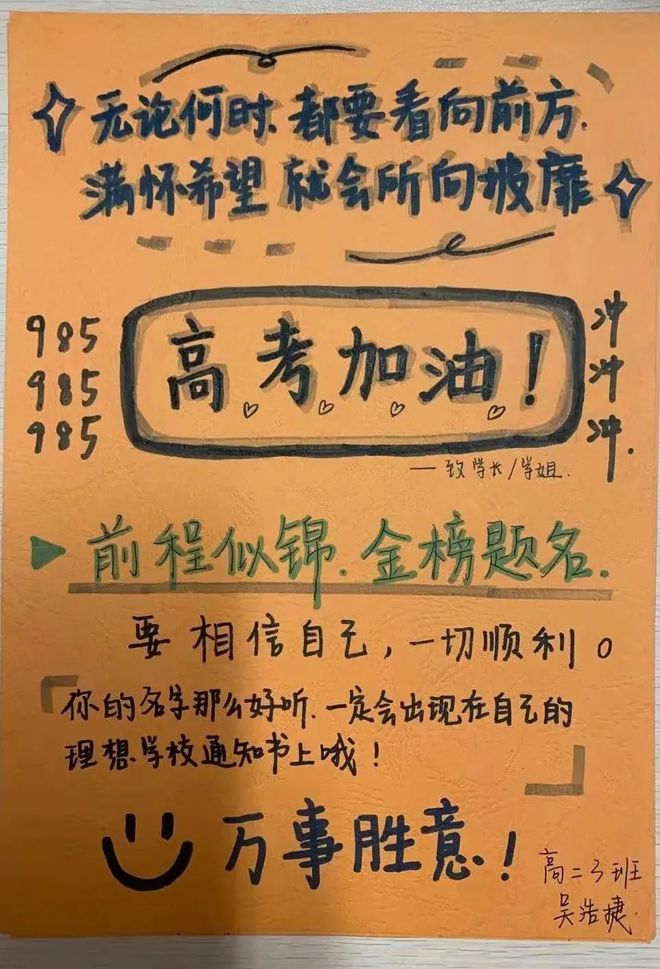 无论何时、都要看向前方.
满怀希望 就会所向披靡
985
985
985
高考加油！
冲
冲
冲.
—致学长/学姐.
前程似锦.金榜题名.
要相信自己，一切顺利。
你的名字那么好听.一定会出现在自己的
理想学校通知书上哦！
万事胜意！
高二3班
吴浩捷.